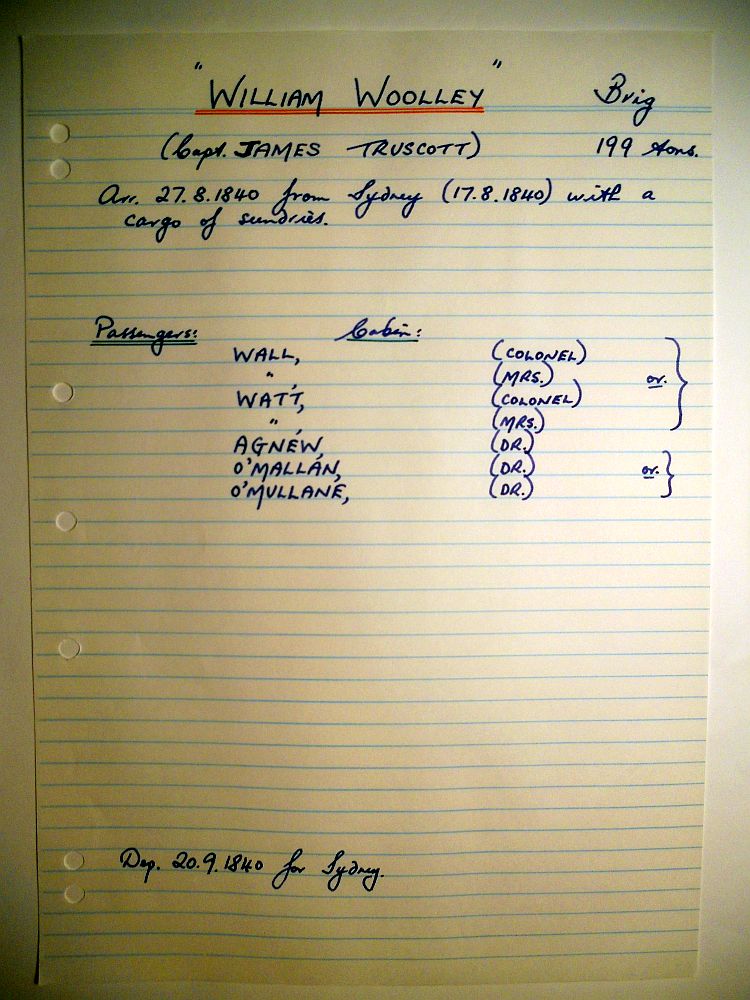 "WILLIAM WOOLLEY" Brig
(Capt. JAMES TRUSCOTT) 199 tons.
Arr. 27.8.1840 from Sydney (17.8.1840) with a
cargo of sundries.
Passengers: Cabin:
WALL, (COLONEL)
" , (MRS.) or.
WATT, (COLONEL)
" , (MRS.)
AGNEW, (DR.)
O'MALLAN, (DR.) or.
O'MULLANE, (DR.)
Dep. 20.9.1840 for Sydney.